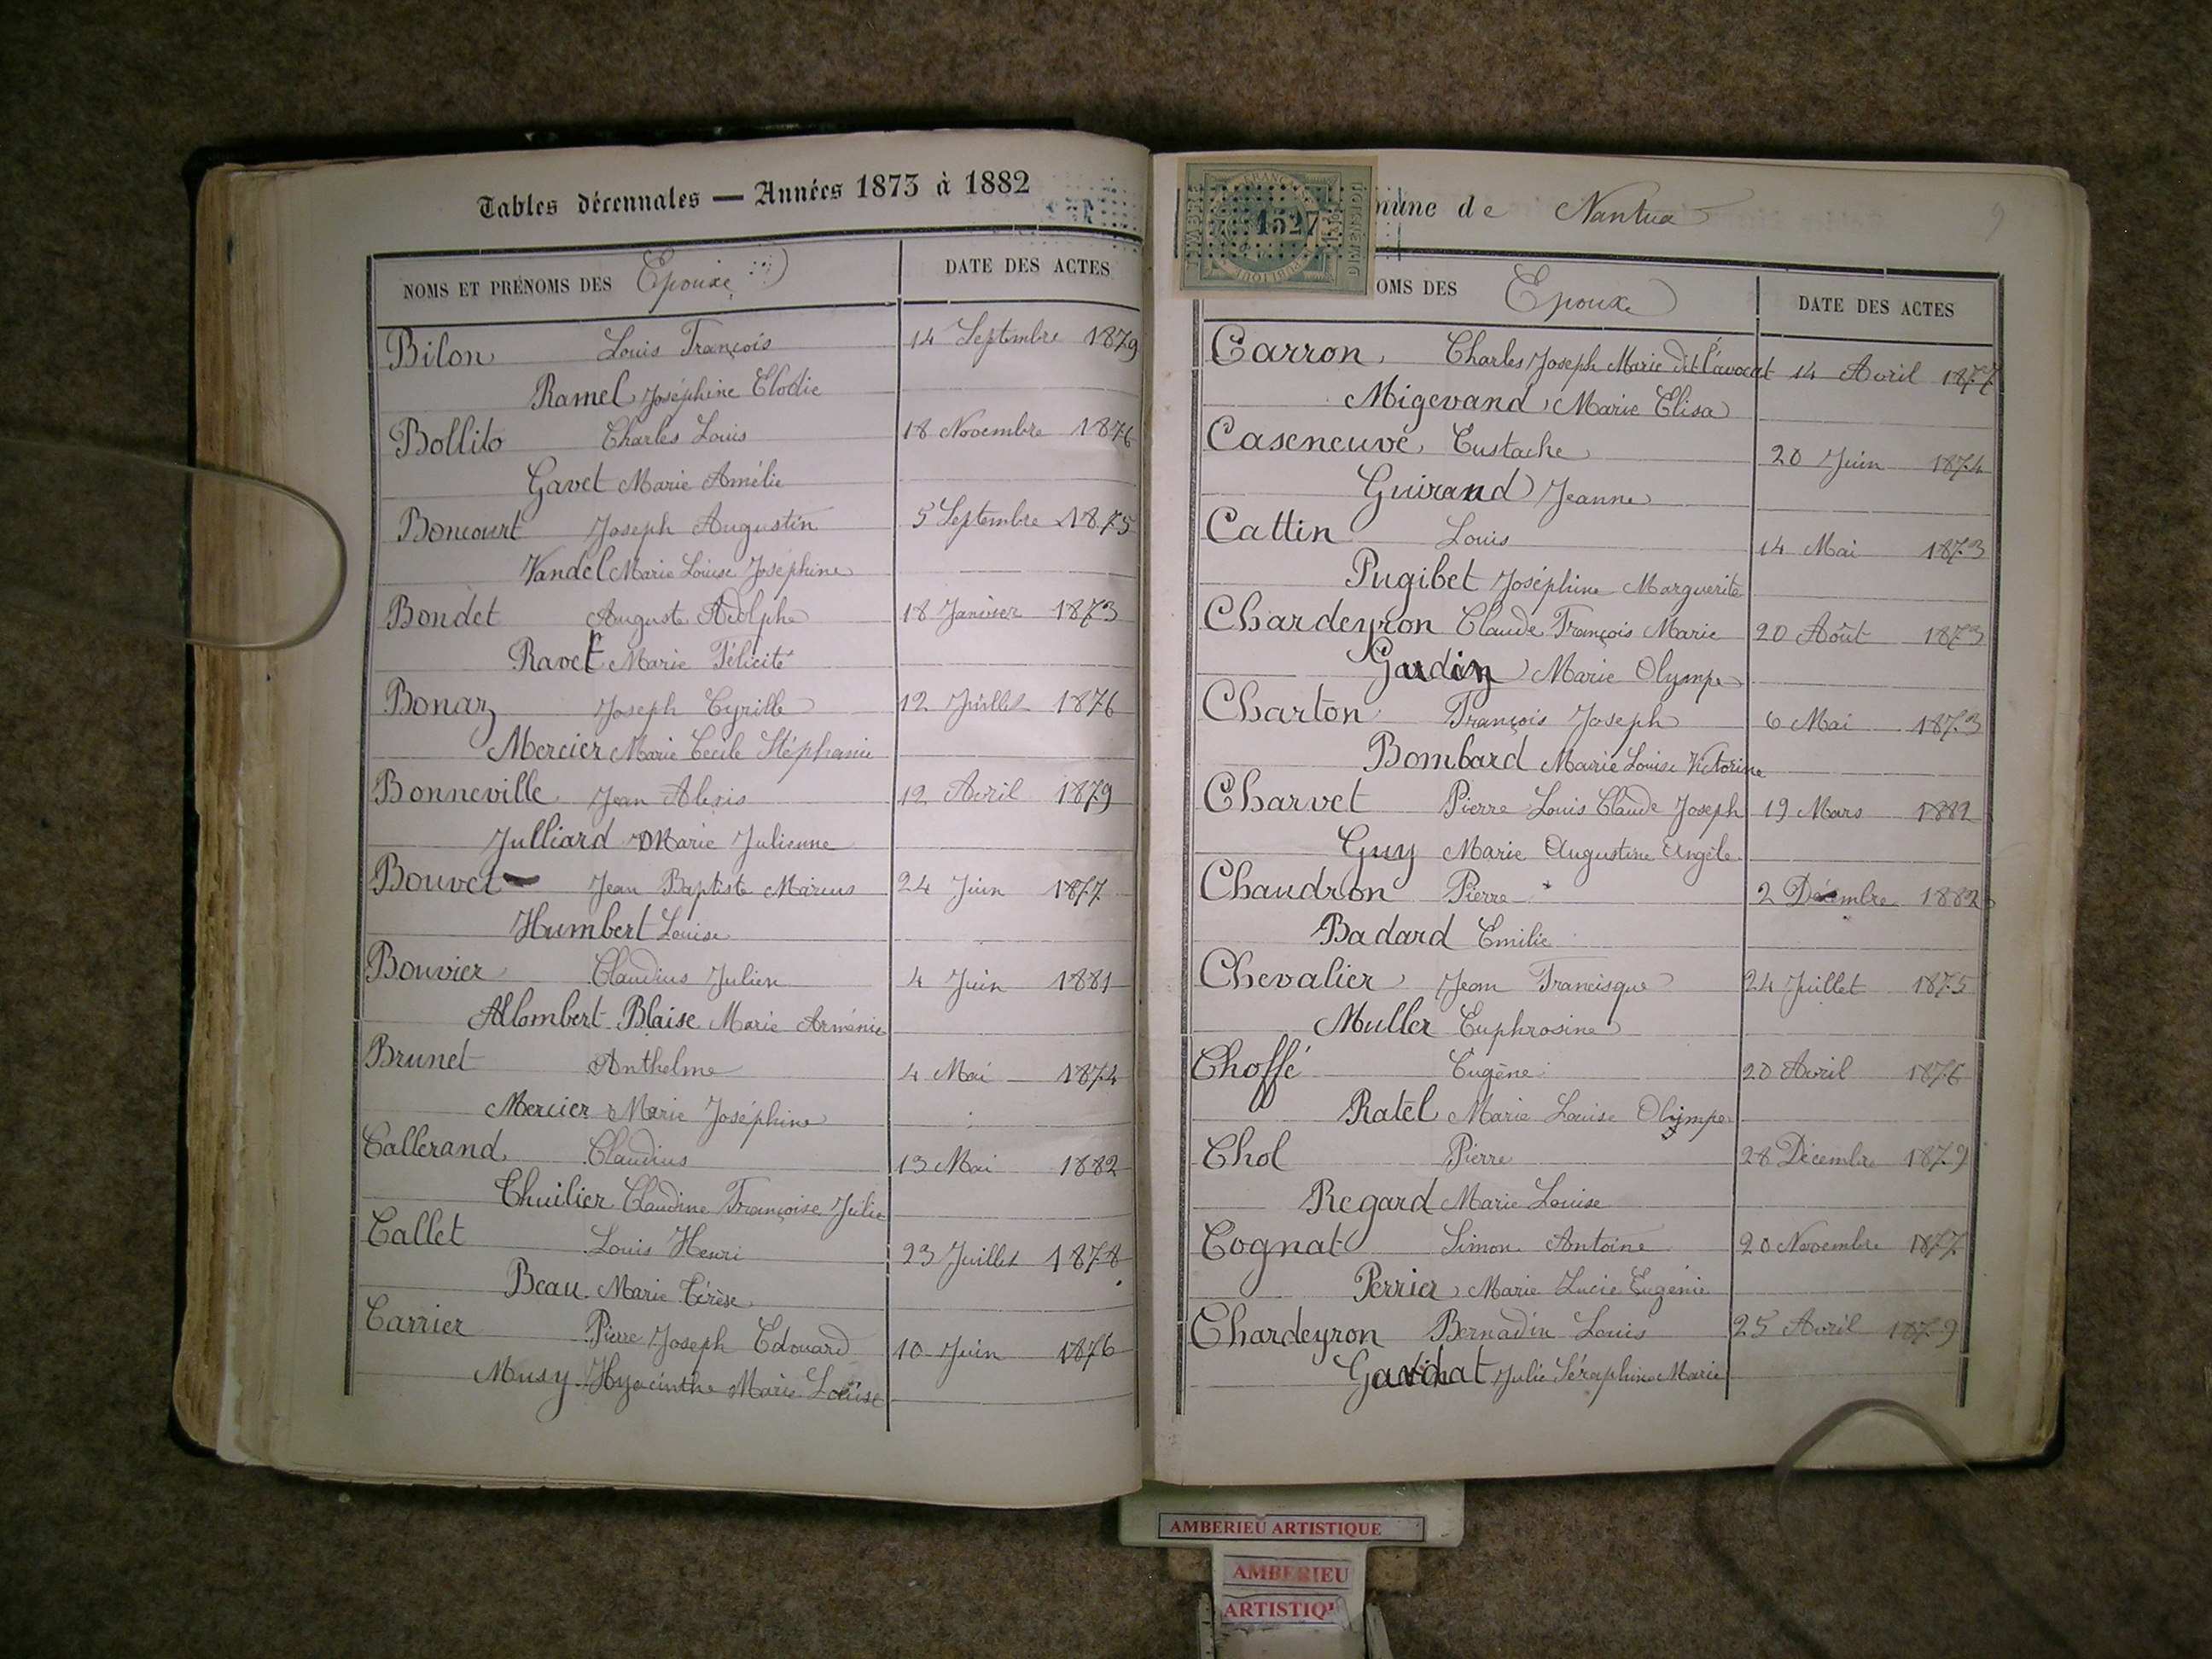 Tables décennales — Années 1873 à 1882
NOMS ET PRÉNOMS DES Epoux
DATE DES ACTES
Bilon Louis François 14 Septembre 1879
Ramel Joséphine Elodie
Bollito Charles Louis 18 Novembre 1876
Gavet Marie Amélie
Boncourt Joseph Augustin 5 Septembre 1875
Vandel Marie Louise Joséphine
Bondet Auguste Adolphe 18 Janvier 1873
Ravet Marie Félicité
Bonaz Joseph Cyrille 12 Juillet 1876
Mercier Marie Cecile Stéphanie
Bonneville Jean Alexis 12 Avril 1879
Julliard Marie Julienne
Bouvet Jean Baptiste Marius 24 Juin 1877
Humbert Louise
Bouvier Claudius Julien 4 Juin 1881
Allombert Blaise Marie Arménie
Brunet Anthelme 4 Mai 1874
Mercier Marie Joséphine
Callerand Claudius 13 Mai 1882
Thuilier Claudine Françoise Julie
Callet Louis Henri 23 Juillet 1878
Beau Marie Térèse
Carrier Pierre Joseph Edouard 10 Juin 1876
Musy Hyacinthe Marie Louise
TIMBRE
FRANÇAISE
4527
DIMENSION
mune de Nantua
9
OMS DES Epoux
DATE DES ACTES
Carron Charles Joseph Marie dit l'avocat 14 Avril 1877
Migevand Marie Elisa
Caseneuve Eustache 20 Juin 1874
Guirand Jeanne
Cattin Louis 14 Mai 1873
Pugibet Joséphine Marguerite
Chardeyron Claude François Marie 20 Août 1873
Marie Olympe
Charton François Joseph 6 Mai 1873
Bombard Marie Louise Victorine
Charvet Pierre Louis Claude Joseph 19 Mars 1882
Guy Marie Augustine Angèle
Chaudron Pierre 2 Décembre 1882
Badard Emilie
Chevalier Jean Francisque 24 Juillet 1875
Muller Euphrosine
Choffé Eugène 20 Avril 1876
Ratel Marie Louise Olympe
Chol Pierre 28 Décembre 1879
Regard Marie Louise
Cognat Simon Antoine 20 Novembre 1877
Perrier Marie Lucie Eugénie
Chardeyron Bernadin Louis 25 Avril 1879
Julie Séraphine Marie
AMBERIEU ARTISTIQUE
AMBERIEU
ARTISTIQU